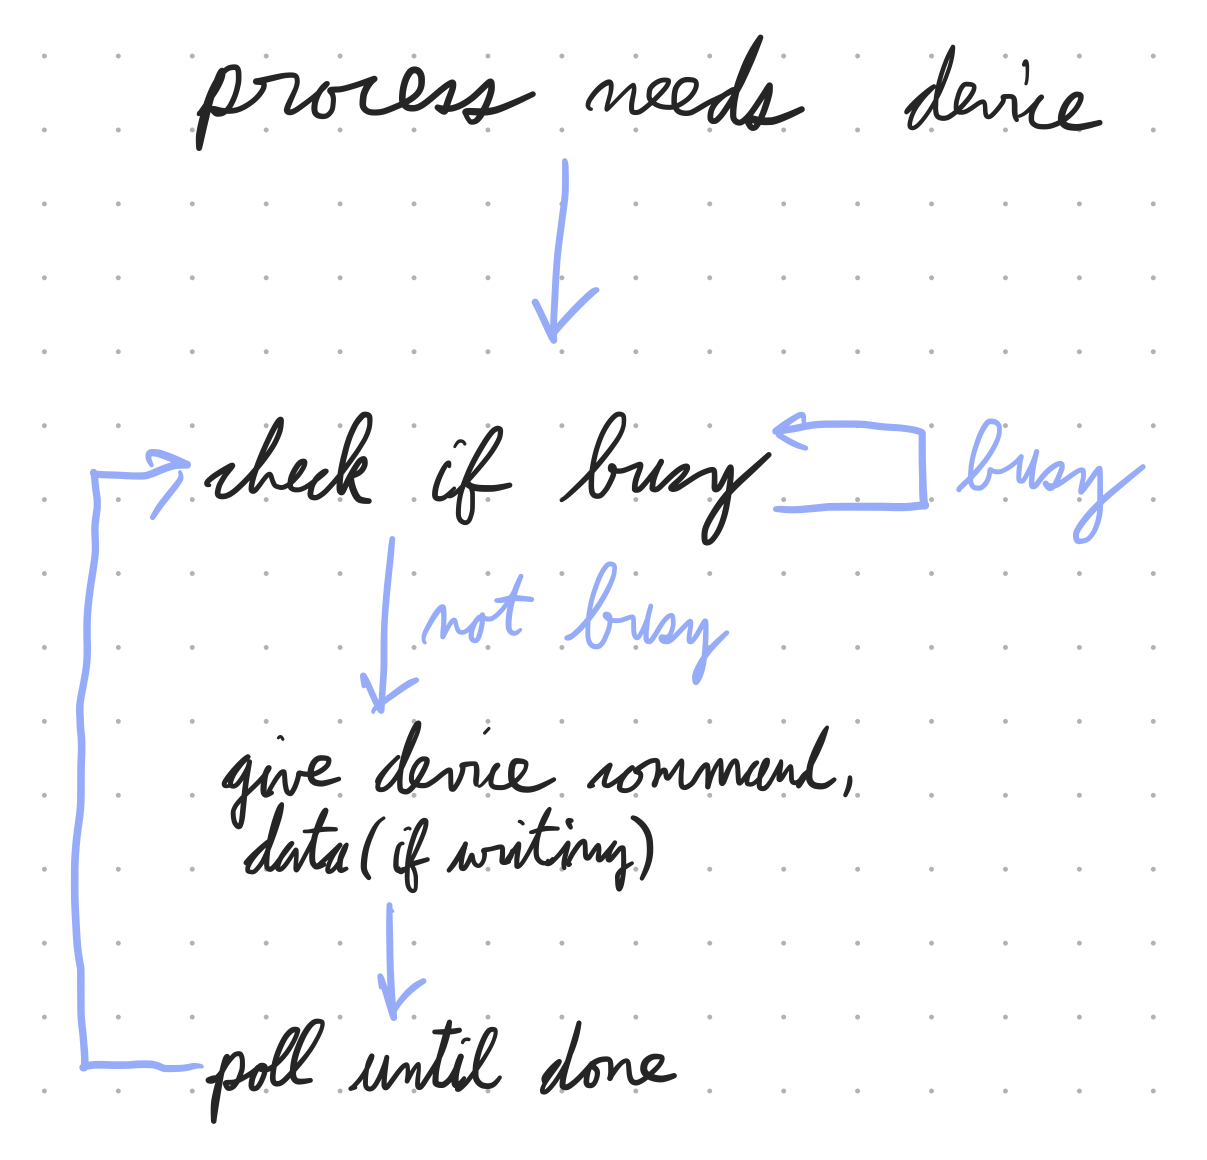 process needs device
check if busy
busy
not busy
give device command,
data (if writing)
poll until done